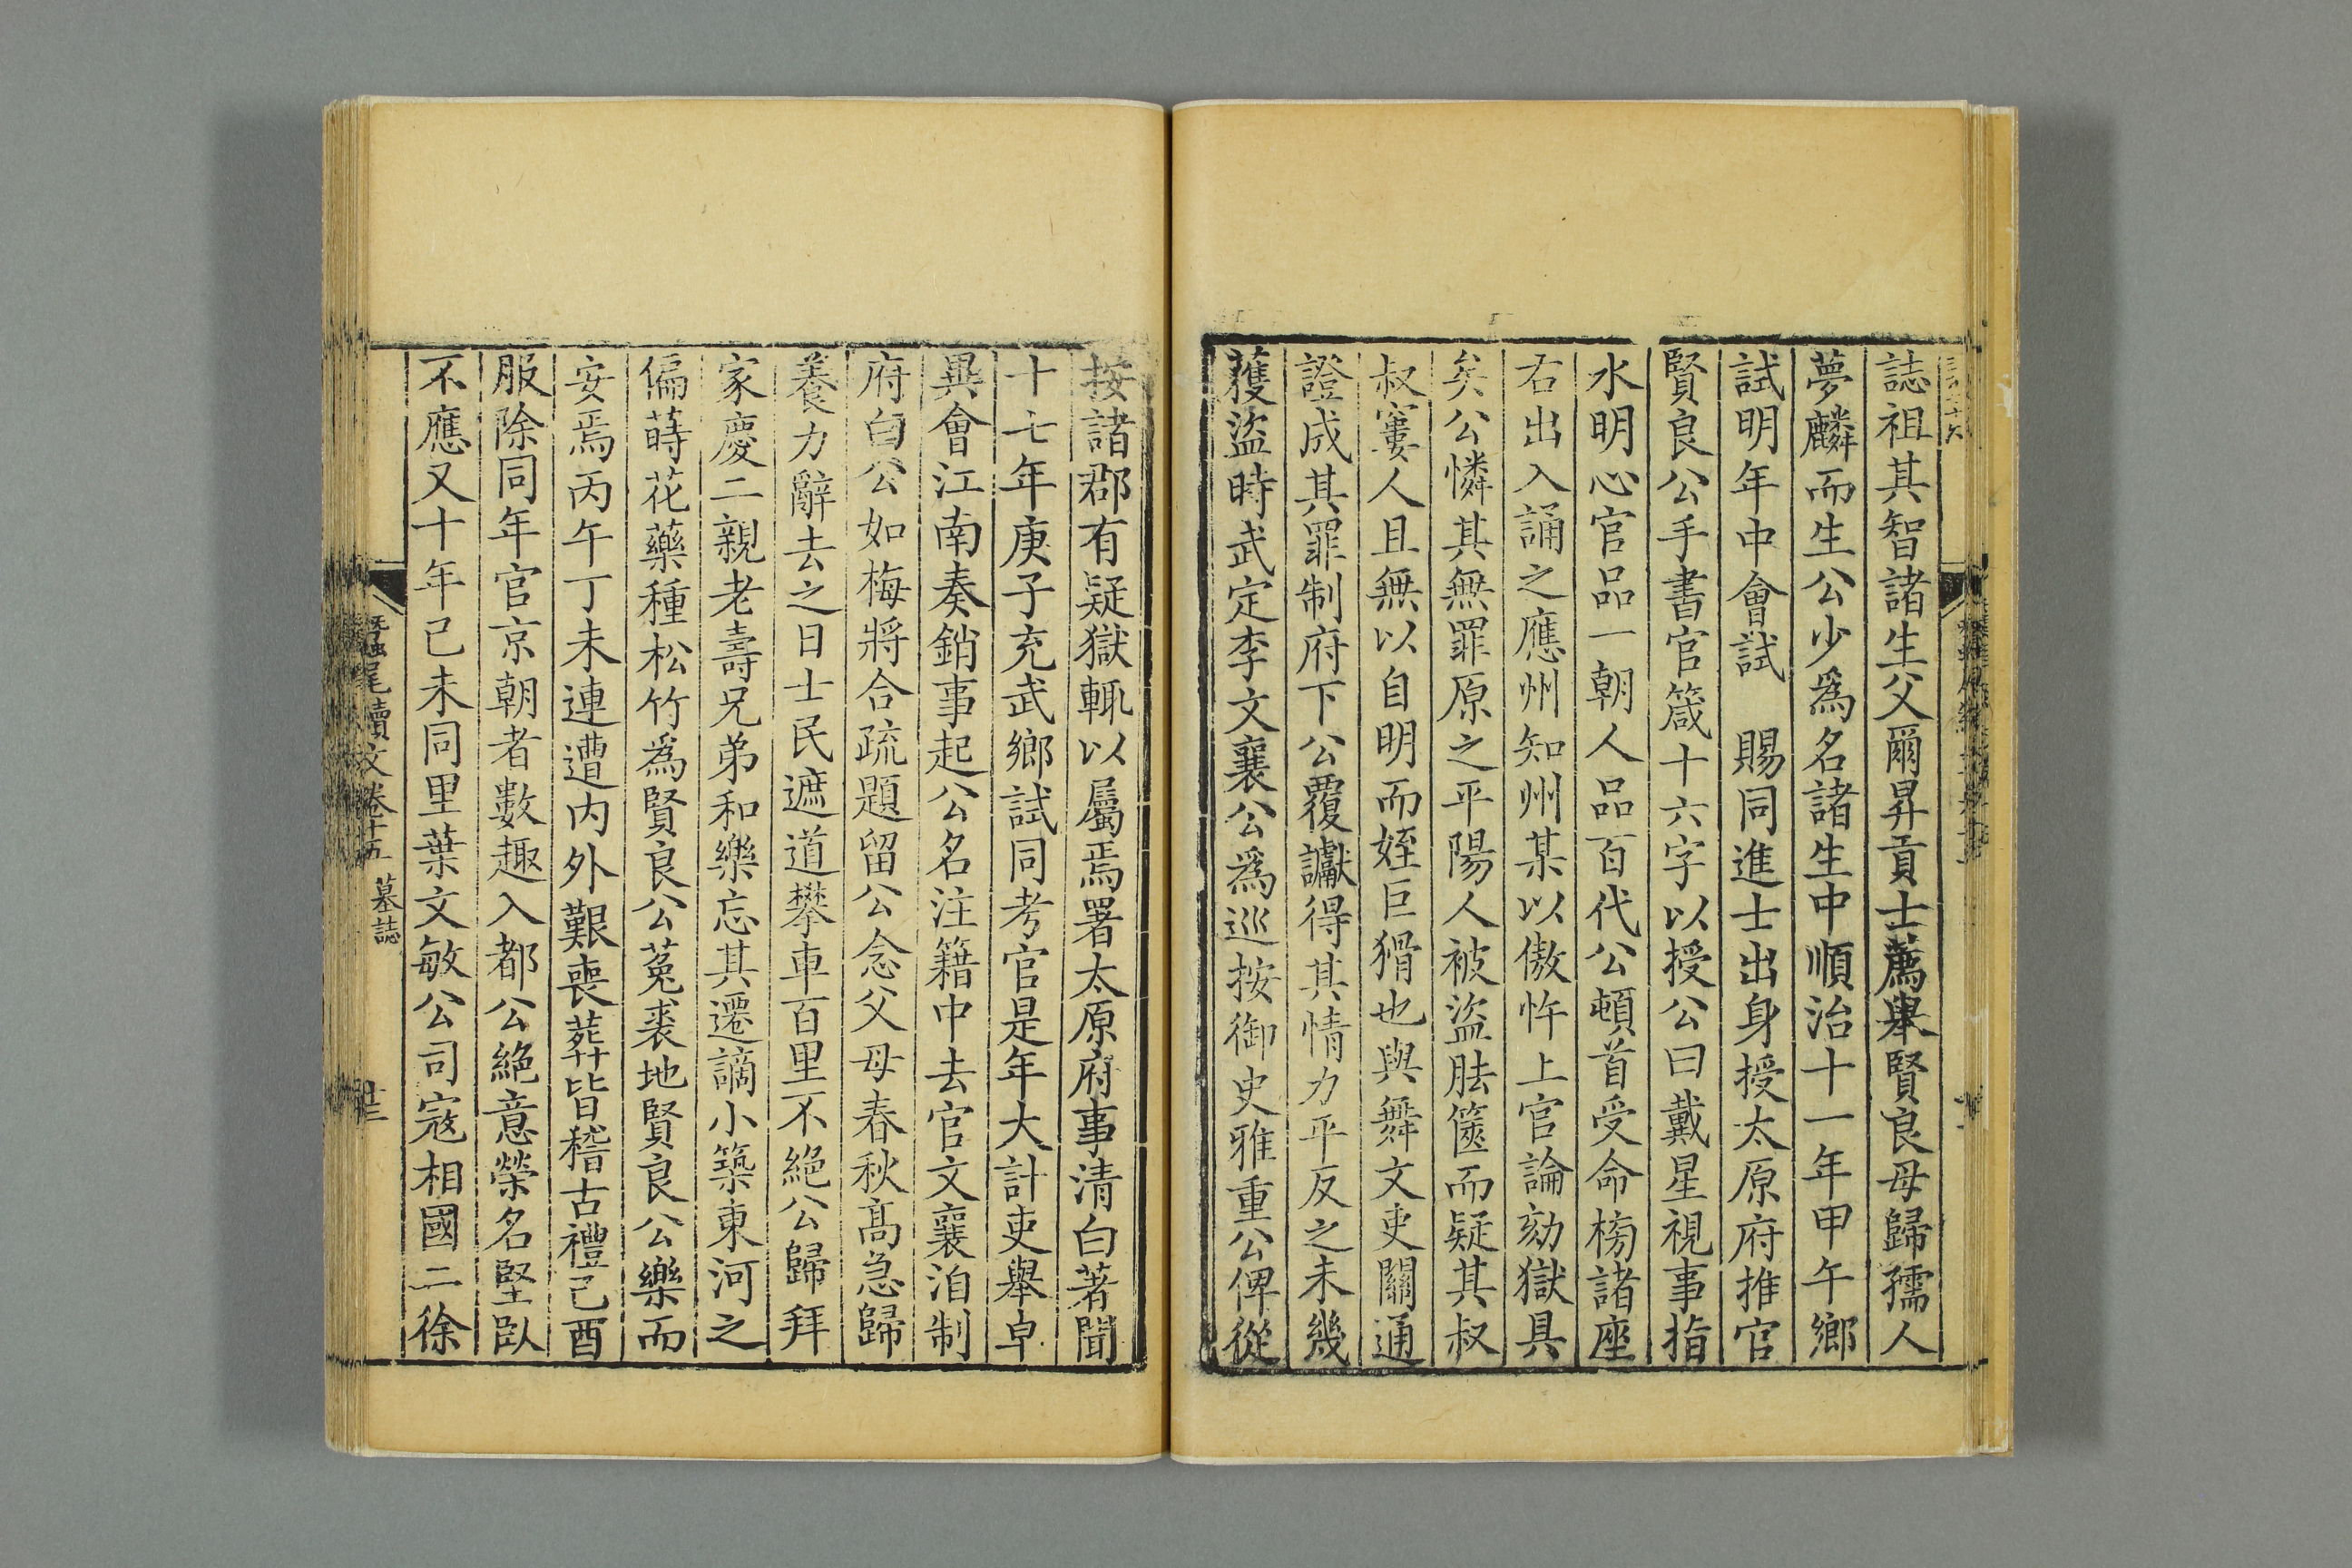 誌祖其智諸生父爾昇貢士薦舉賢良母歸孺人
夢麟而生公少爲名諸生中順治十一年甲午鄉
試明年中會試　賜同進士出身授太原府推官
賢良公手書官箴十六字以授公曰戴星視事指
水明心官品一朝人品百代公頓首受命榜諸座
右出入誦之應州知州某以傲忤上官論劾獄具
矣公憐其無罪原之平陽人被盜胠篋而疑其叔
叔窶人且無以自明而姪巨猾也與舞文吏關通
證成其罪制府下公覆讞得其情力平反之未幾
獲盜時武定李文襄公爲巡按御史雅重公俾從
按諸郡有疑獄輒以屬焉署太原府事清白著聞
十七年庚子充武鄉試同考官是年大計吏舉卓
異會江南奏銷事起公名注籍中去官文襄洎制
府白公如梅將合疏題留公念父母春秋高急歸
養力辭去之日士民遮道攀車百里不絕公歸拜
家慶二親老壽兄弟和樂忘其遷謫小築東河之
偏蒔花藥種松竹爲賢良公菟裘地賢良公樂而
安焉丙午丁未連遭內外艱喪葬皆稽古禮己酉
服除同年官京朝者數趣入都公絕意榮名堅臥
不應又十年己未同里葉文敏公司寇相國二徐
蠶尾續文卷十五 墓誌